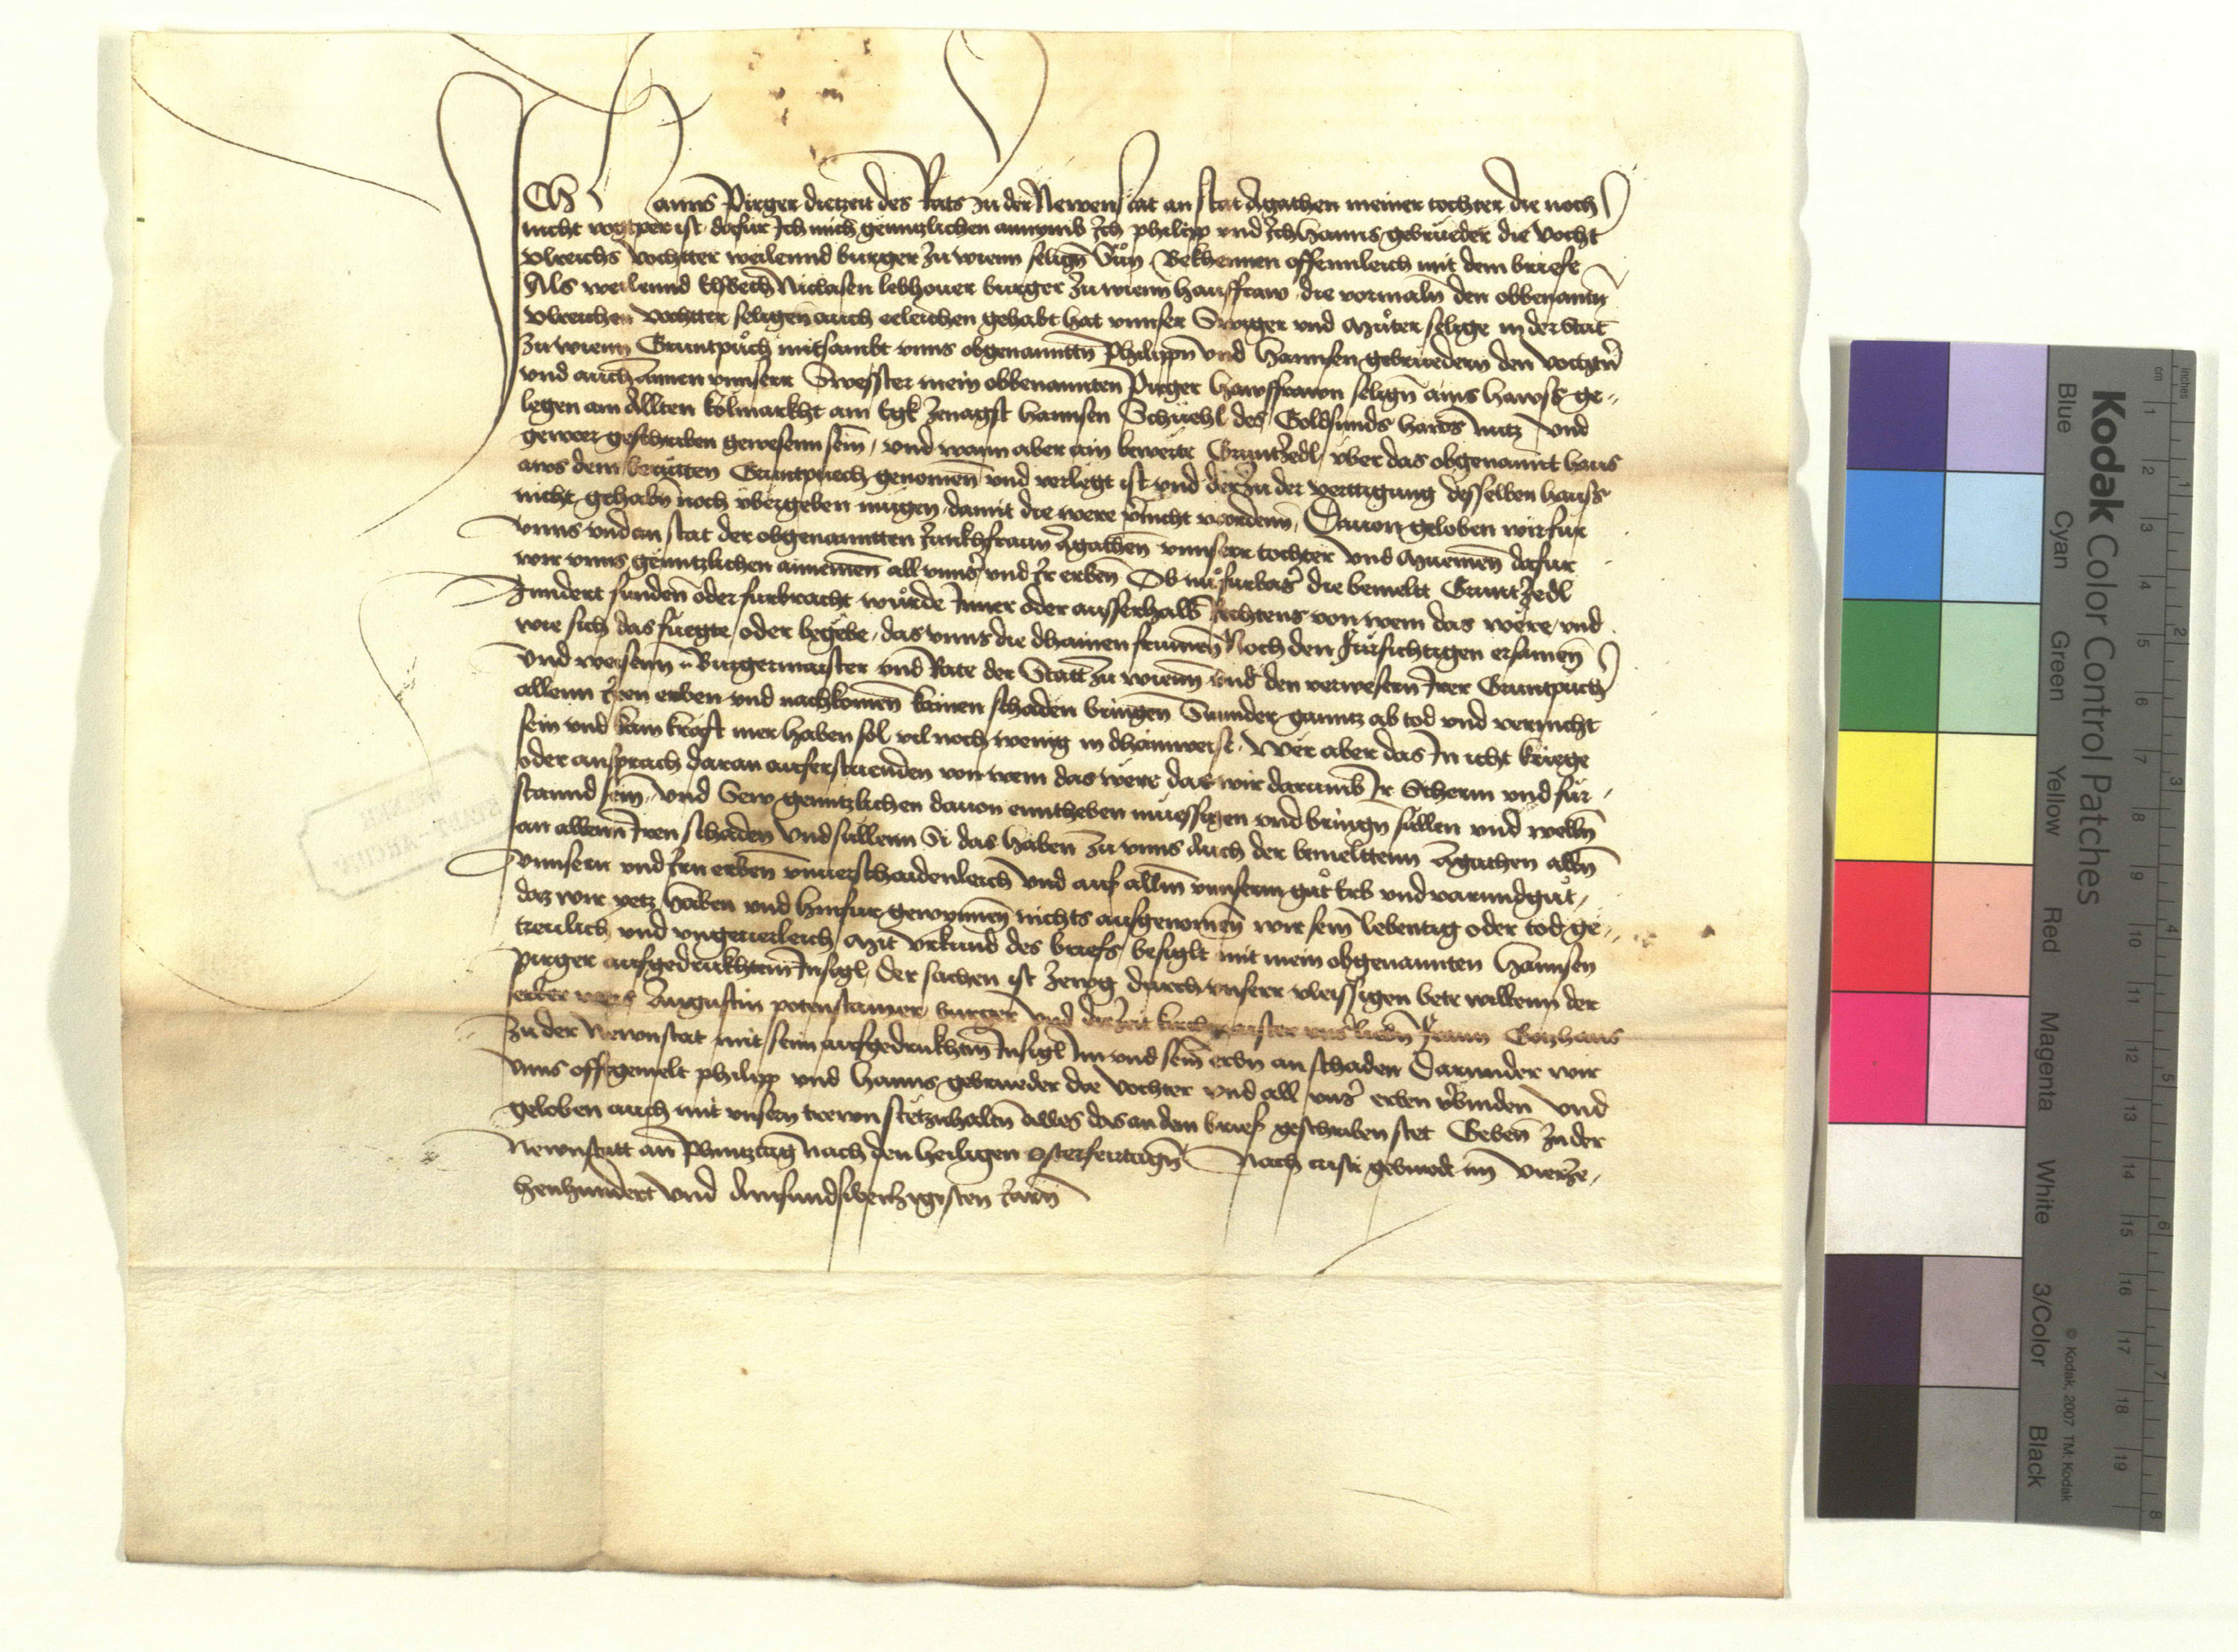 Ich Hanns Pirger diezeit des Rats zu der Newenstat an stat Agathen meiner tochter die noch
nicht vogtper ist dafur Ich mich genntzlichen annymb Ich philipp vnd Ich Hanns gebrueder die Vocht
Vlreichs Vochtter weilennd burger zu wienn seligen Sün Bekhennen offennleich mit dem briefe
Als weilennd Elsbeth Niclasen lebhouer burger zu wienn hausfraw die vormaln den obbenantn
Vlreichen vochtter seligen auch eeleichen gehabt hat vnnser Swiger vnd Muter selige in der Stat
zu wienn Gruntpuch mitsambt vnns obgenanntn Philippn vnd Hannsen gebruedern den vochtern
vnd auch Annen vnnserr Swesster mein obbenannten Pirger hawsfrawn seligen ains hawss ge-
legen am Allten kolmarkht am Egk zenagst Hannsen Schuehl des Goldsmids haws nutz vnd
gewer geschriben gewesenn sein, vnd wann aber ain bewerte Gruntzedl vber das obgenannt haus
aws dem berurten Gruntpuech genomen vnd verlegt ist vnd der zu der vertigung desselben hauss
nicht gehabn noch vbergeben mugen damit die were vernicht wordenn, Dauon geloben wir fur
vnns vnd an stat der obgenanntten Junkhfraun Agathen vnnserr tochter vnd Muemen dafur
wir vnns genntzlichen annemen all vnnser vnd Ir erben Ob nu furbaser die bemelt Gruntzedl
Inndert funden oder furbracht wurde Inner oder ausserhalb Rechtens von wem das were, vnd
wie sich das fuegte oder begebe, das vnns die dhainen frumen Noch den fursichtigen ersamen
vnd weisenn Burgermaister vnd Rate der Statt zu wienn vnd den verwesern Irer Gruntpuch
allenn Iren erben vnd nachkomen kainen schaden bringen Sunder ganntz ab tod vnd vernicht
sein vnd kain kraft mer haben sol vil noch wenig in dhainweise, Wer aber das In icht kriege
oder ansprach daran auferstuenden von wem das were das wir darumb Ir Scherm vnd fur-
stannd sein, vnd Sew genntzlichen dauon enntheben muessigen vnd bringen sullen vnd welln
an allenn Iren schaden vnd sullenn Si das haben zu vnns Auch der bemelttenn Agathen alln
vnnsern vnd Irn erben vnuerschaidenleich vnd auf allm vnnserm gut Erb vnd varundgut,
daz wir yetz haben vnd hinfur gewynnen nichts ausgenomen wir sein lebentig oder tod ge-
treulich vnd vngeuerleich Mit vrkund des briefs besiglt mit mein obgenannten Hannsen
Pirger aufgedrukhtem Insigl, Der sachen ist zewg durch vnserr vleissigen bete willenn der
erber weis Augustin potenstainer burger vnd diezeit kirchmaister vnser lieben frawn Gotzhaus
zu der Newnstat mit seim aufgedrukhtem Insigl Im vnd sein erbn an schaden Darunder wir
vnns offtgemelt philipp vnd Hanns gebrueder die Vochter vnd all vnser erben verbinden vnd
geloben auch mit vnsern trewn stetzuhaltn alles das an dem brief geschriben stet Geben zu der
Newnstatt an Phintztag nach den heiligen Osterfeirtagen Nach cristi geburde im vierze-
henhundert vnd Ainsundsibenzigisten Jaren
WIENER
STADT
ARCHIV
Kodak Color Control Patches
© Kodak, 2007 TM: Kodak
Blue Cyan Green Yellow Red Magenta White 3/Color Black
inches 1 2 3 4 5 6 7 8
cm 1 2 3 4 5 6 7 8 9 10 11 12 13 14 15 16 17 18 19